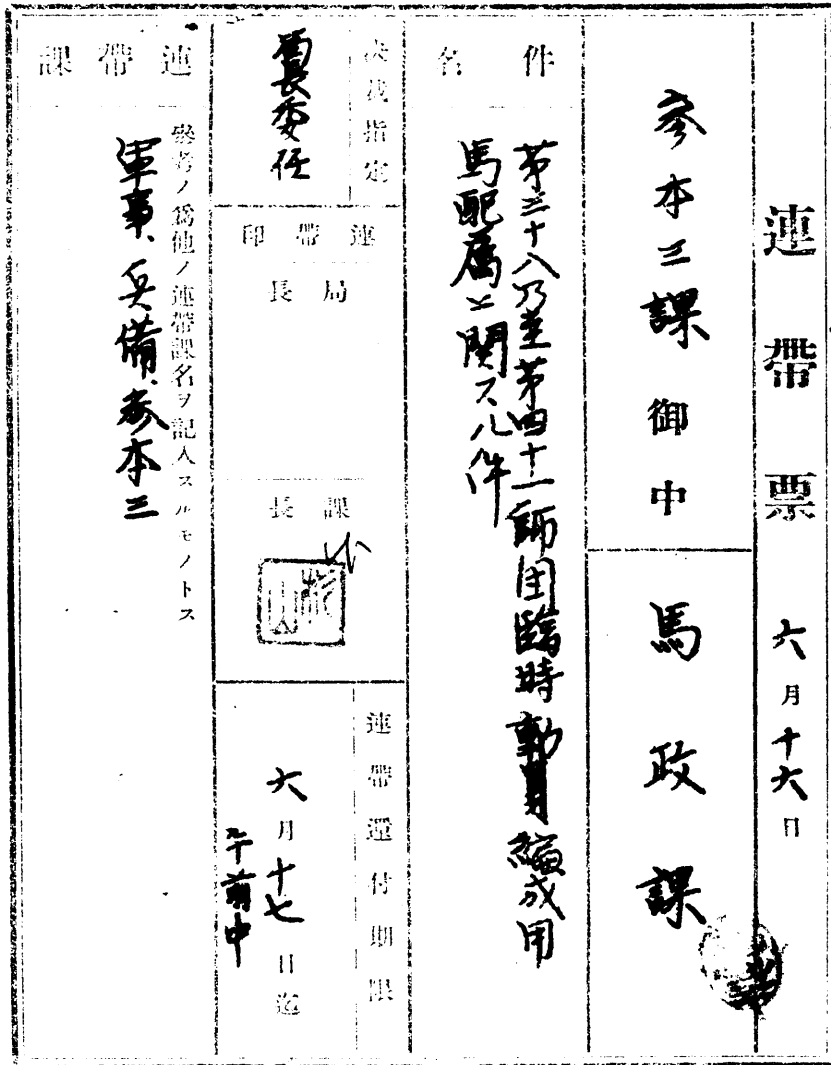 連帶票 六月十六日
參本三課御中
馬政課
件名
第三十八乃至第四十一師団臨時動員編成用
馬配属ニ関スル件
決裁指定
委任
連帶印
局長
課長
連帶還付期限
六月十七日迄
午前中
連帶課
參考ノ爲他ノ連帶課名ヲ記入スルモノトス
軍事、兵備、參本三